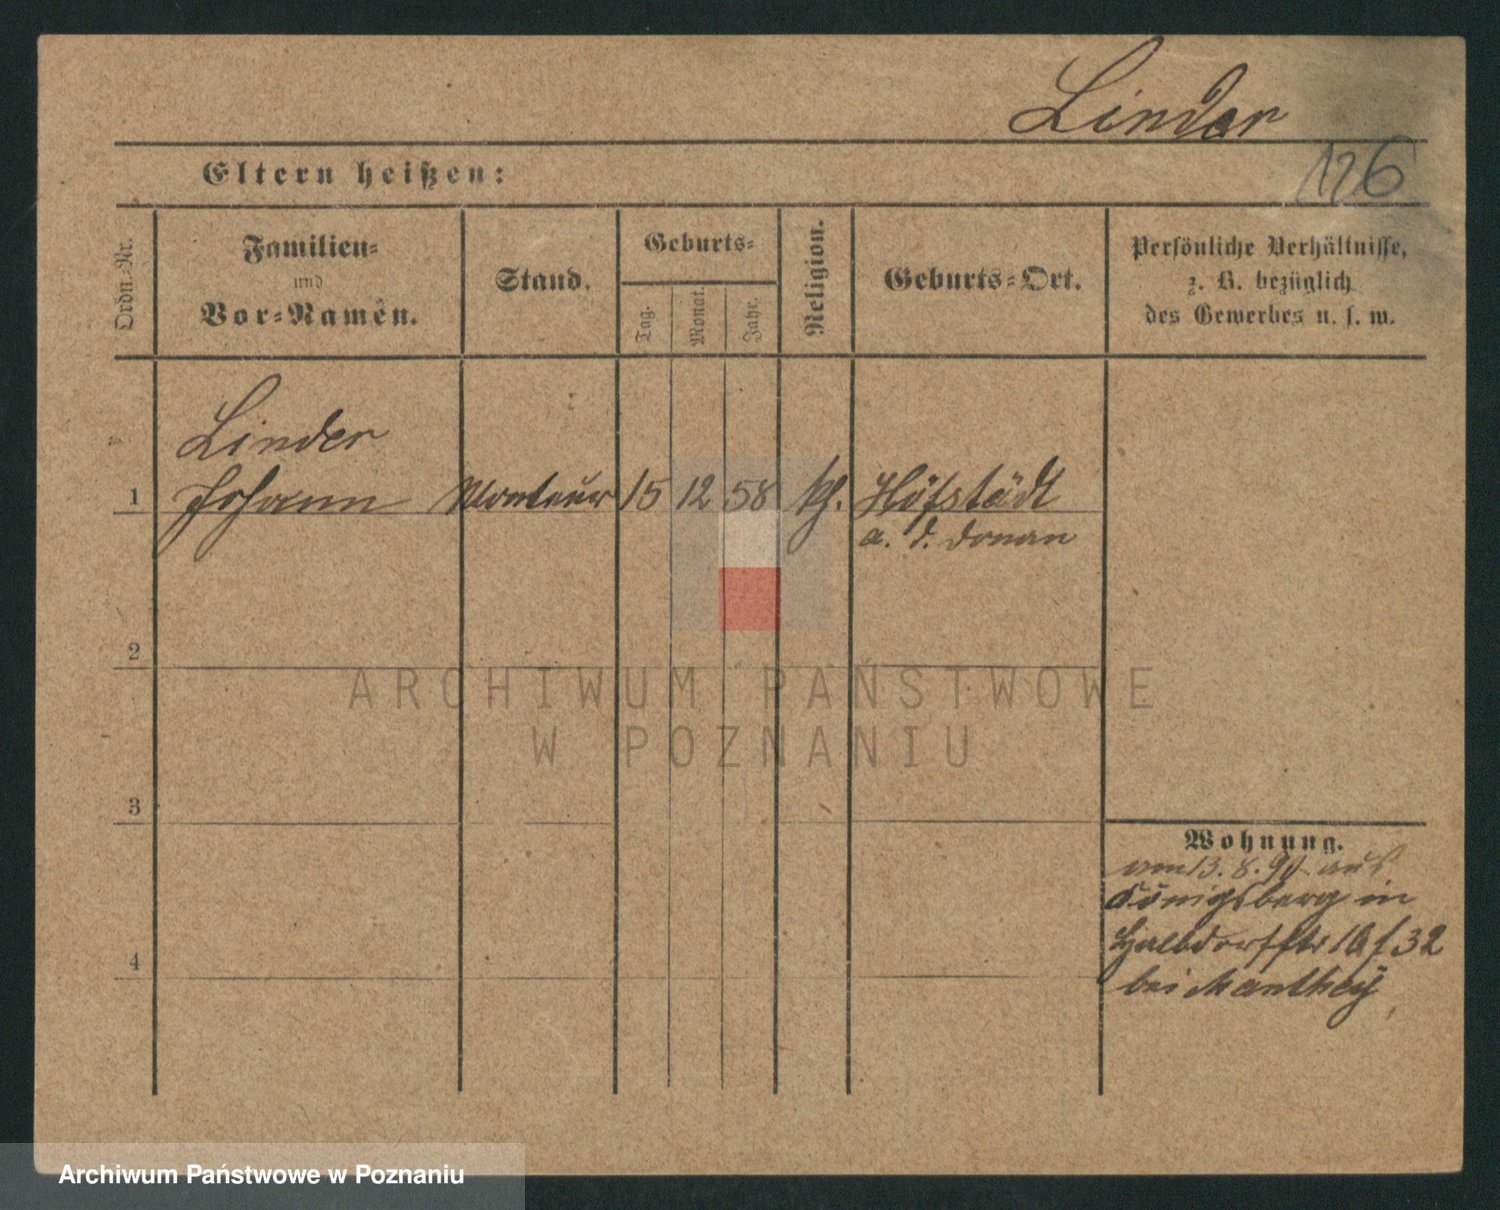 Linder
126
Eltern heißen:
Ordn.-Nr.
Familien-
und
Vor-Namen.
Stand.
Geburts-
Tag.
Monat.
Jahr.
Religion.
Geburts-Ort.
Persönliche Verhältnisse,
z. B. bezüglich
des Gewerbes u. s. w.
Linder
1 Johann Monteur 15 12 58 kh. Höfstädt
a. d. Donau
2
ARCHIWUM PAŃSTWOWE
W POZNANIU
3
Wohnung.
am 13. 8. 90 aus
Königsberg in
Halbdorfstr
bei Manthey
4
Archiwum Państwowe w Poznaniu